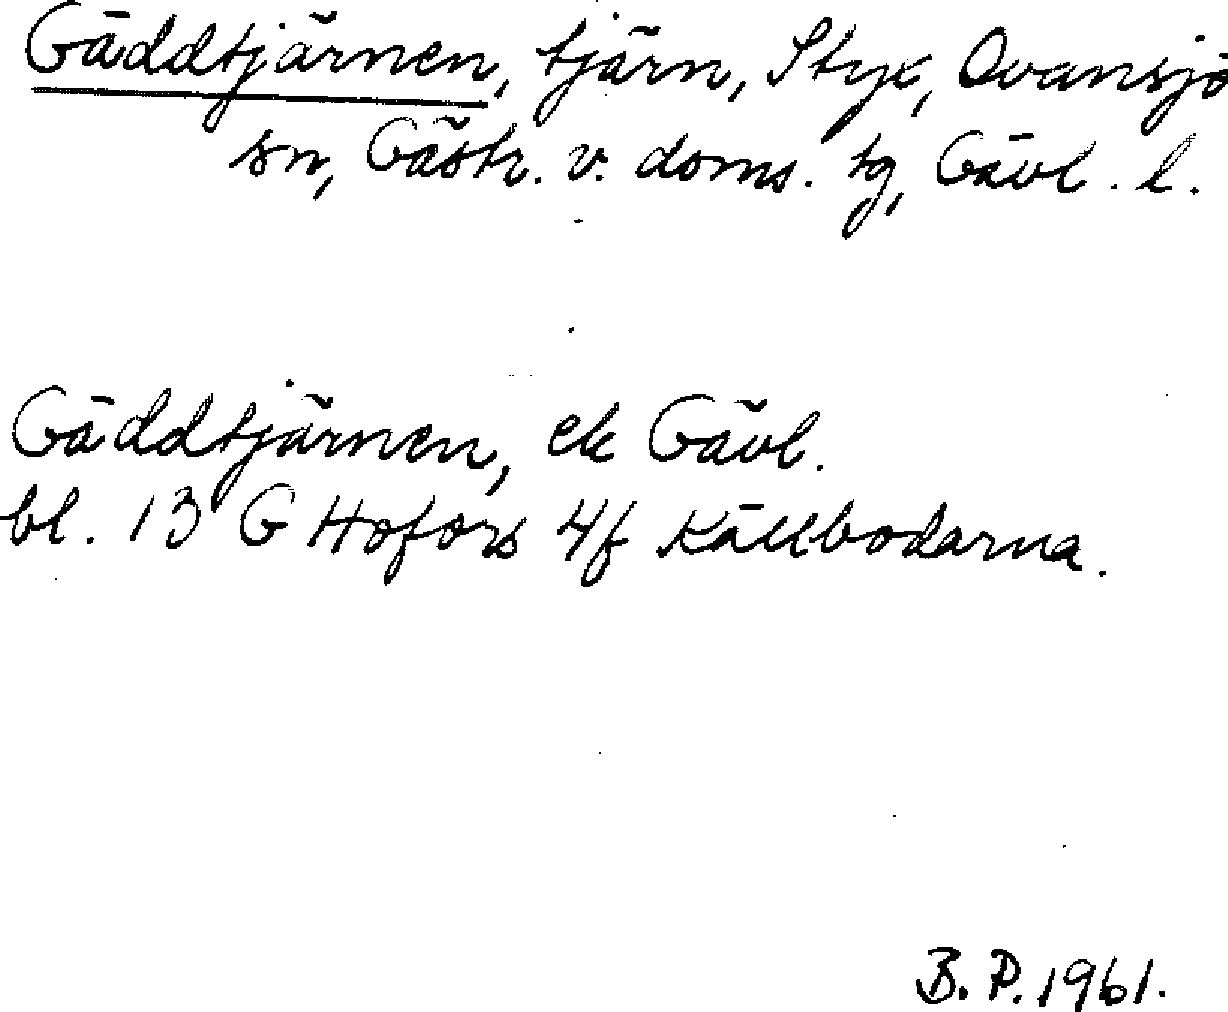 Gäddtjärnen, tjärn, Styx, Ovansjö
sn, Gästr. v. doms. tg, Gävl. l.
Gäddtjärnen, ek Gävl.
bl. 13 G Hofors 4f Källbodarna.
B. P. 1961.